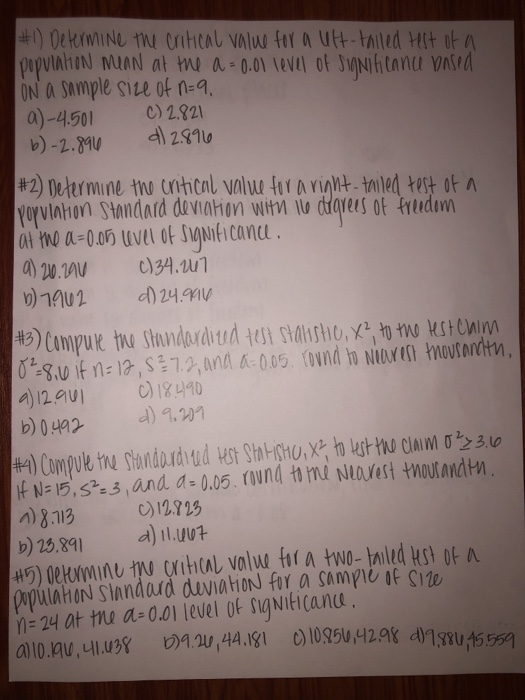 #1) Determine the critical value for a left-tailed test of a
population mean at the α = 0.01 level of significance based
on a sample size of n=9.
a) -4.501 c) 2.821
b) -2.896 d) 2.896
#2) Determine the critical value for a right-tailed test of a
population standard deviation with 16 degrees of freedom
at the α=0.05 level of significance.
a) 26.296 c) 34.267
b) 7.962 d) 24.996
#3) Compute the standardized test statistic, X², to the test claim
σ²=8.6 if n=12, S²=7.2, and α=0.05. round to nearest thousandth.
a) 12.961 c) 18.490
b) 0.492 d) 9.209
#4) Compute the standardized test statistic, X², to test the claim σ²≥3.6
if N=15, S²=3, and α=0.05. round to the nearest thousandth.
a) 8.713 c) 12.823
b) 23.891 d) 11.667
#5) Determine the critical value for a two-tailed test of a
population standard deviation for a sample of size
n=24 at the α=0.01 level of significance.
a) 10.196, 41.638 b) 9.26, 44.181 c) 10.856, 42.98 d) 9.886, 45.559